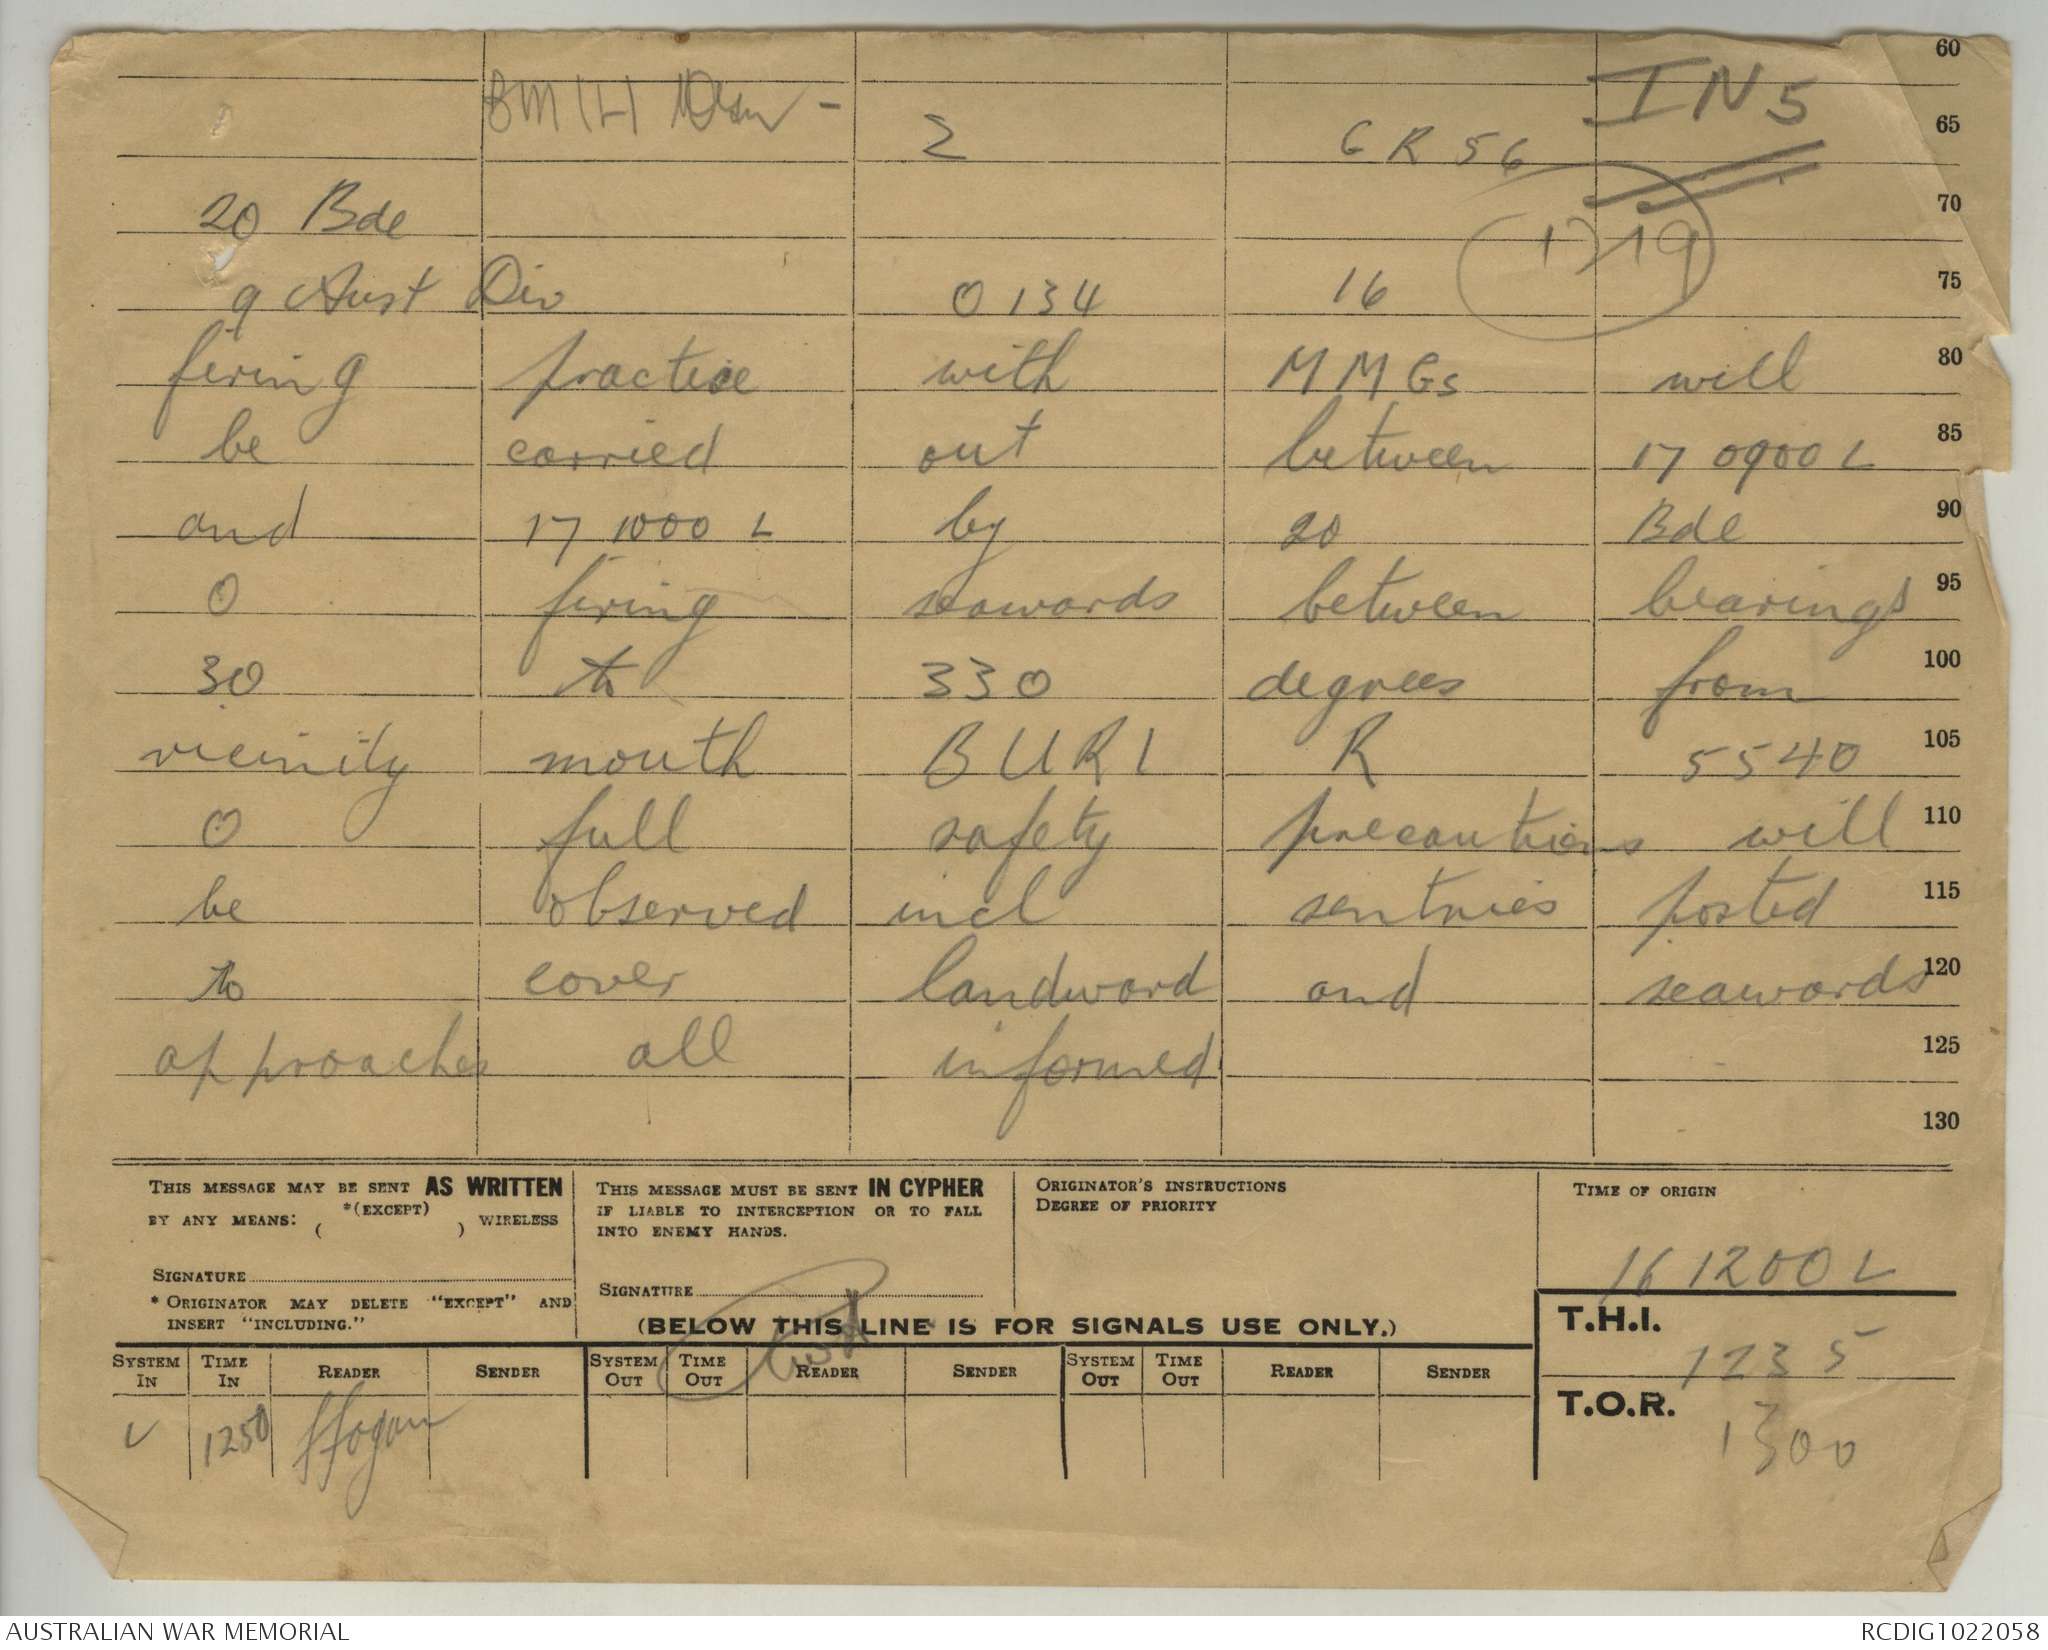 60
BM (L) - IN 5
2 GR 56 65
20 Bde 70
1719
9 Aust Div 0134 16 75
firing practice with MMGs will 80
be carried out between 17 0900 L 85
and 17 1000 L by 20 Bde 90
O firing seawards between bearings 95
30 to 330 degrees from 100
vicinity mouth BURI R 5540 105
O full safety precautions will 110
be observed incl sentries posted 115
to cover landward and seawards 120
approaches all informed 125
130
THIS MESSAGE MAY BE SENT AS WRITTEN
BY ANY MEANS: *(EXCEPT) ( ) WIRELESS
SIGNATURE
* ORIGINATOR MAY DELETE "EXCEPT" AND
INSERT "INCLUDING."
THIS MESSAGE MUST BE SENT IN CYPHER
IF LIABLE TO INTERCEPTION OR TO FALL
INTO ENEMY HANDS.
SIGNATURE
ORIGINATOR'S INSTRUCTIONS
DEGREE OF PRIORITY
TIME OF ORIGIN
16 1200 L
(BELOW THIS LINE IS FOR SIGNALS USE ONLY.)
T.H.I.
1235
SYSTEM IN TIME IN READER SENDER SYSTEM OUT TIME OUT READER SENDER SYSTEM OUT TIME OUT READER SENDER
T.O.R.
1300
V 1250 Hogan
AUSTRALIAN WAR MEMORIAL RCDIG1022058